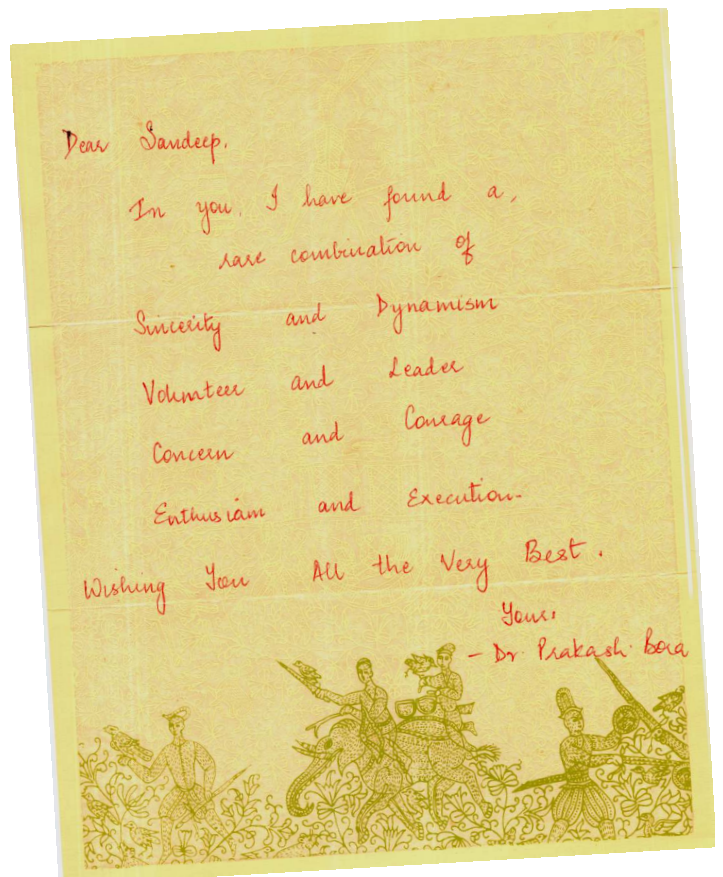 Dear Sandeep,
In you, I have found a,
rare combination of
Sincerity and Dynamism
Volunteer and Leader
Concern and Courage
Enthusiam and Execution-
Wishing You All the Very Best.
Yours,
- Dr. Prakash. Bora